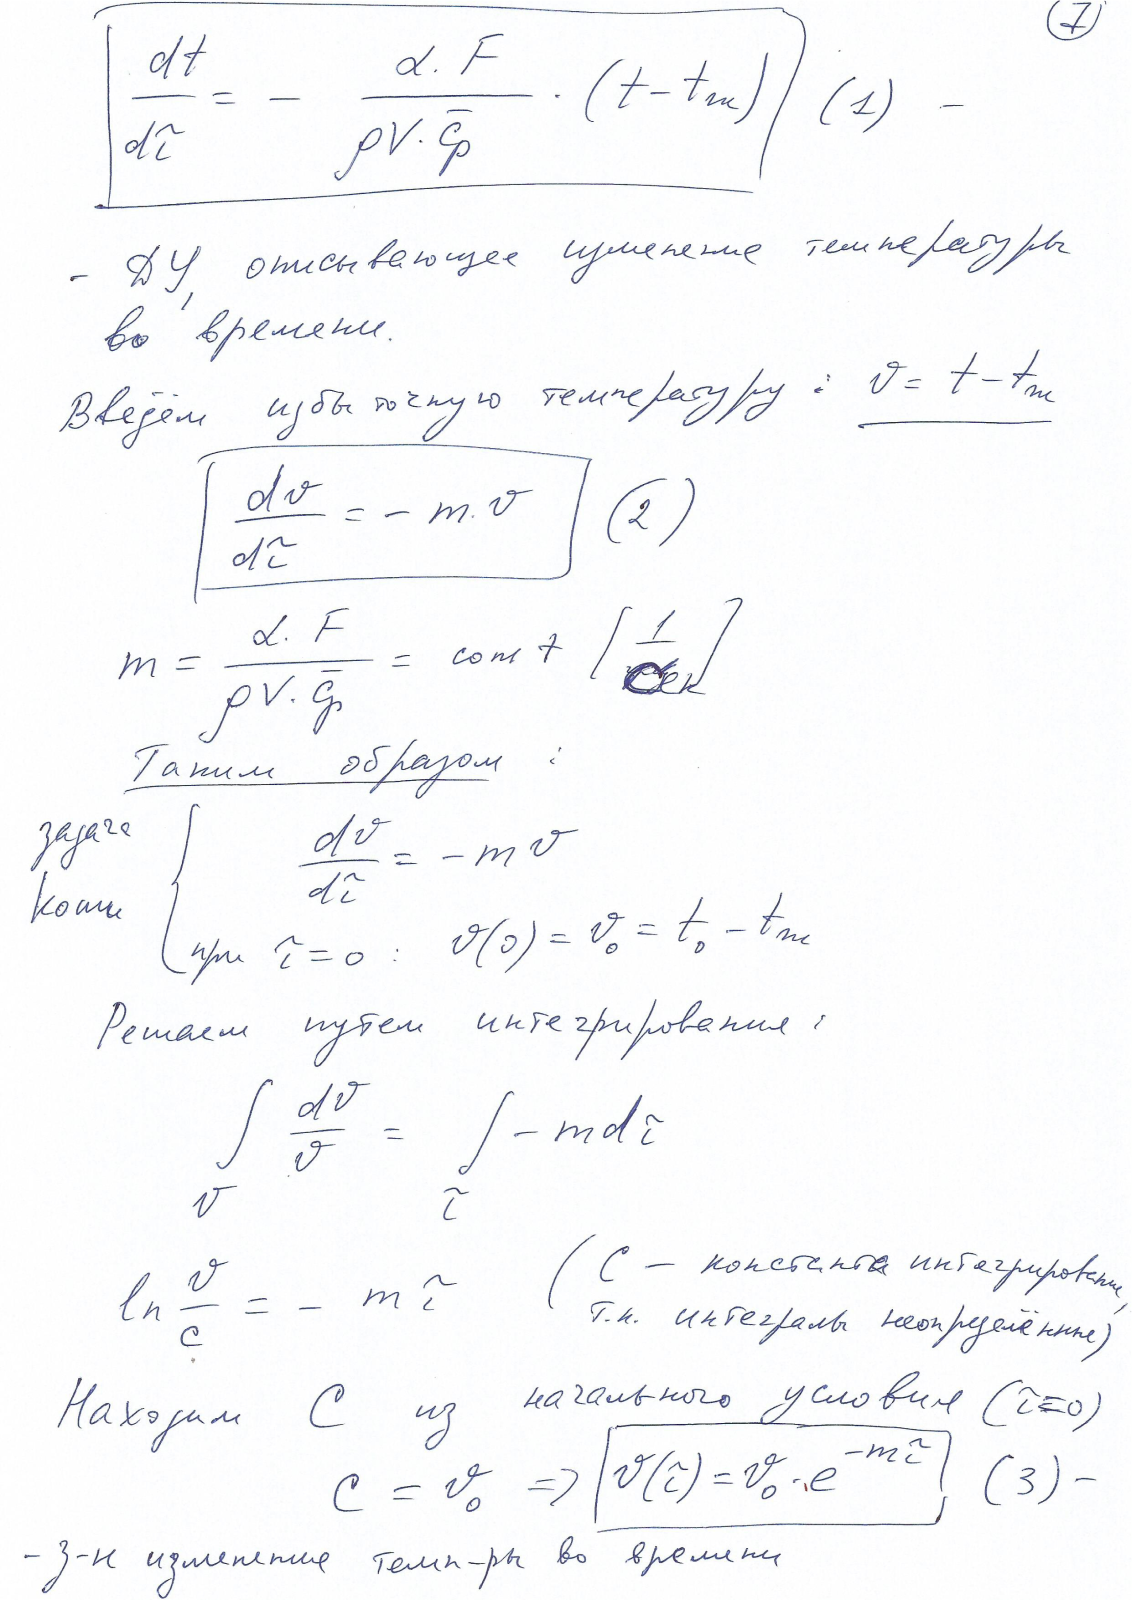 (7)
dt/dτ = − α·F / ρV·c̄p · (t − tж) (1) –
– ДУ, описывающее изменение температуры
во времени.
Введём избыточную температуру: ϑ = t − tж
dϑ/dτ = − m·ϑ (2)
m = α·F / ρV·c̄p = const [1/сек]
Таким образом:
задача Коши { dϑ/dτ = − mϑ
при τ = 0: ϑ(0) = ϑ₀ = t₀ − tж
Решаем путем интегрирования:
∫ϑ dϑ/ϑ = ∫τ − mdτ
ln ϑ/c = − mτ (C – константа интегрирования,
т.к. интегралы неопределённые)
Находим C из начального условия (τ=0)
C = ϑ₀ => ϑ(τ) = ϑ₀·e^(−mτ) (3) –
– з-н изменение темп-ры во времени